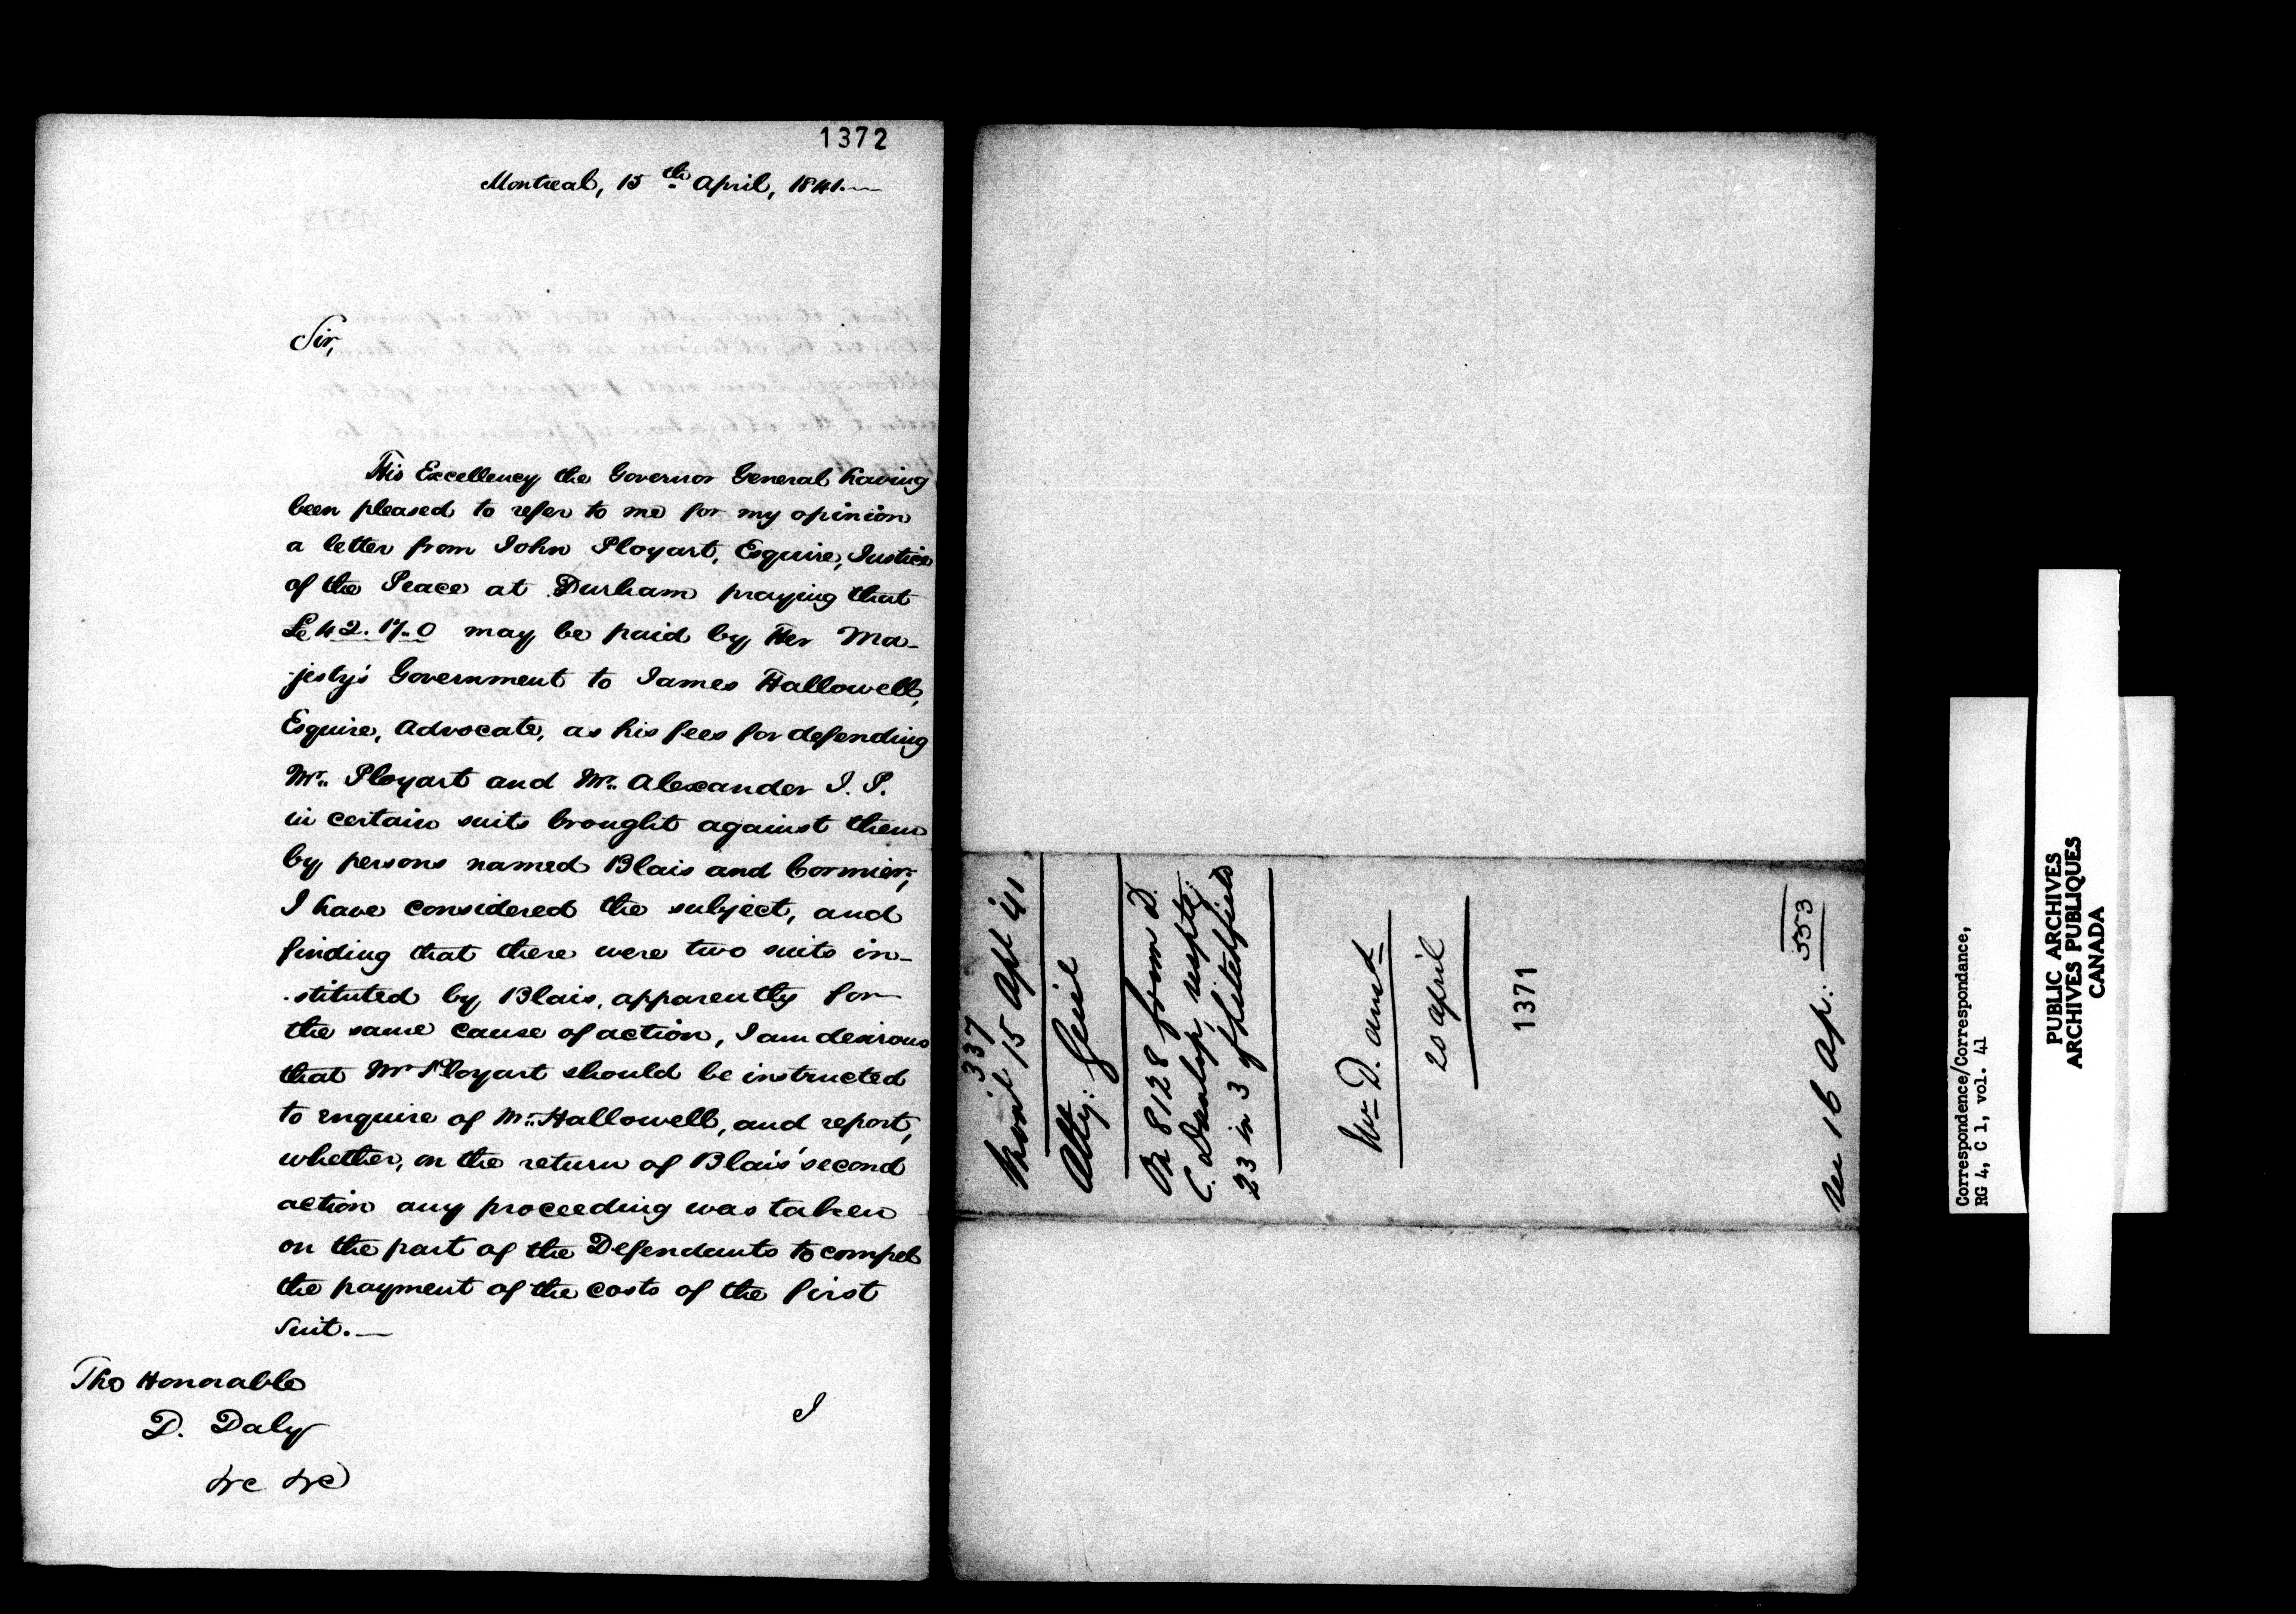 1372
Montreal, 15th April, 1841.—
Sir,
His Excellency the Governor General having
been pleased to refer to me for my opinion
a letter from John Ployart, Esquire, Justice
of the Peace at Durham praying that
£42.17.0 may be paid by Her Ma-
jesty's Government to James Hallowell,
Esquire, Advocate, as his fees for defending
Mr. Ployart and Mr. Alexander J. P.
in certain suits brought against them
by persons named Blais and Cormier;
I have considered the subject, and
finding that there were two suits in-
stituted by Blais, apparently for
the same cause of action, I am desirous
that Mr Ployart should be instructed
to enquire of Mr. Hallowell, and report,
whether, on the return of Blais' second
action any proceeding was taken
on the part of the Defendants to compel
the payment of the costs of the first
suit.—
The Honorable
D. Daly
&c &c
I
337
Montl 15 Apl '41
Atty: Genl
8128 from D.
C. Dunlop, respts:
23 in 3 of
D. ansd
20 april
1371
Rec 16 Ap: 553
Correspondence/Correspondance,
RG 4, C 1, vol. 41
PUBLIC ARCHIVES
ARCHIVES PUBLIQUES
CANADA